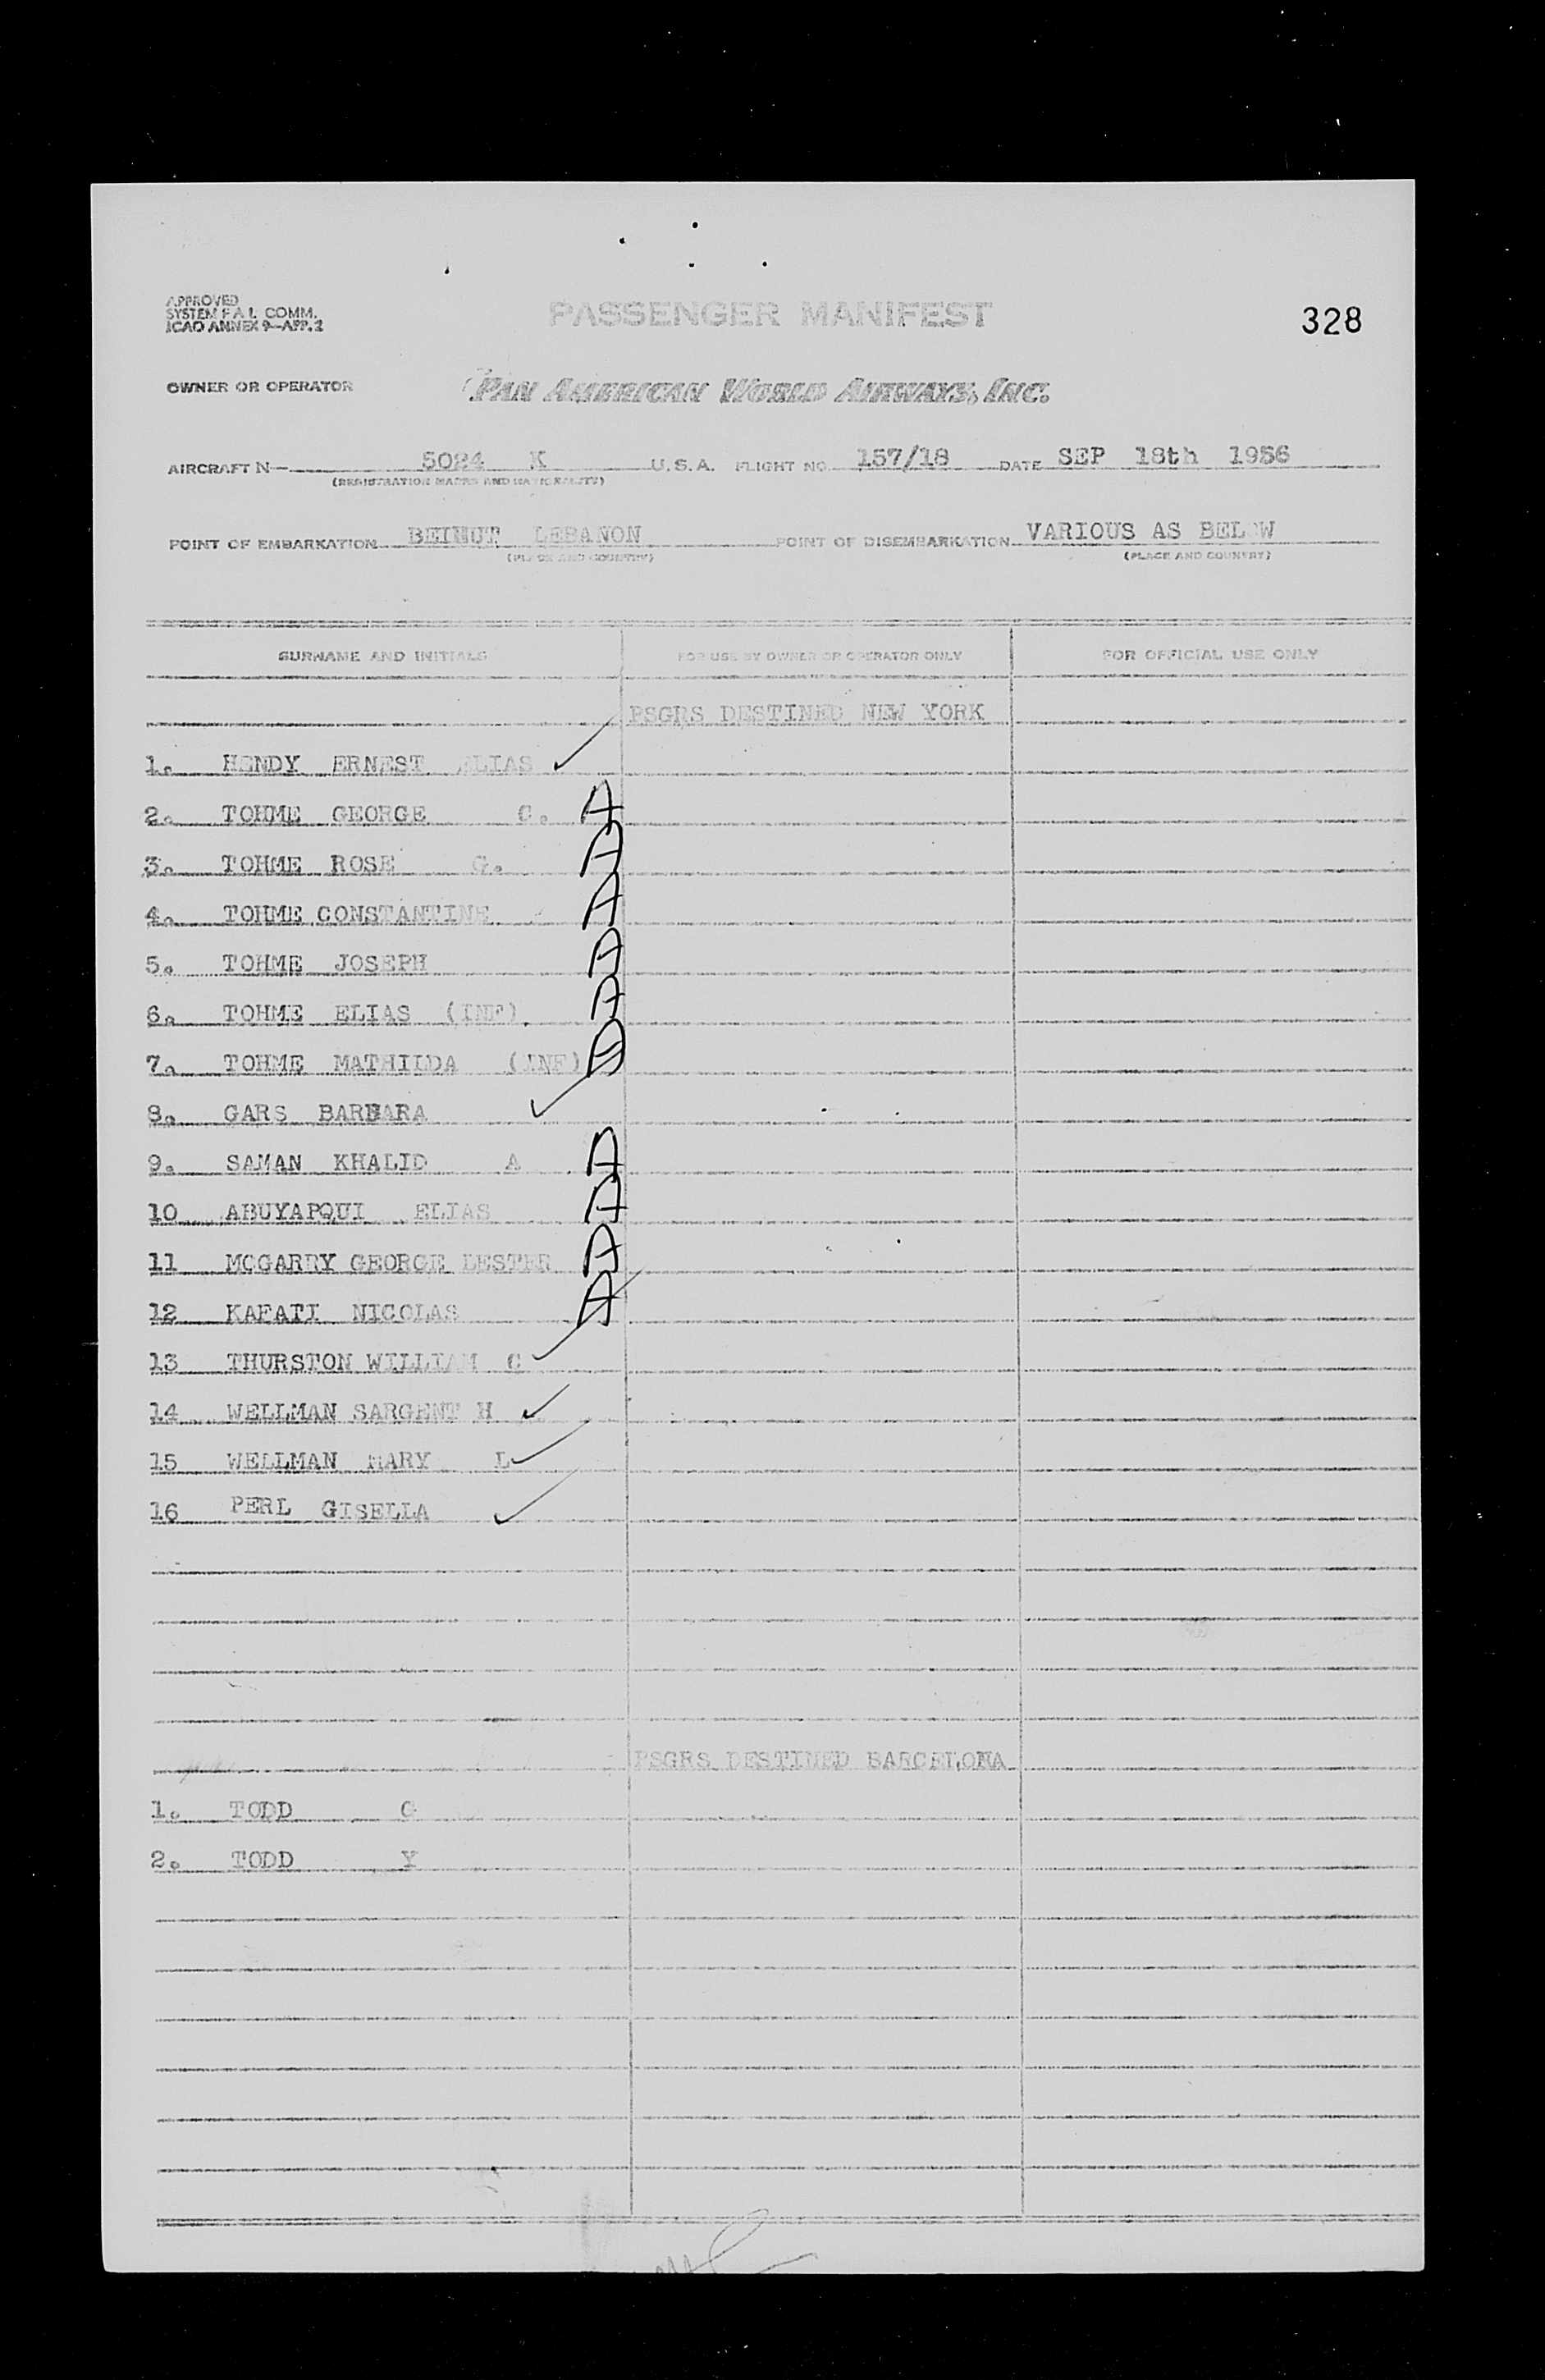 APPROVED
SYSTEM F A L COMM.
ICAO ANNEX 9—APP. 2
PASSENGER MANIFEST
328
OWNER OR OPERATOR PAN AMERICAN WORLD AIRWAYS, INC.
AIRCRAFT N— 5024 K U.S.A. FLIGHT NO. 157/18 DATE SEP 18th 1956
(REGISTRATION MARKS AND NATIONALITY)
POINT OF EMBARKATION BEIRUT LEBANON POINT OF DISEMBARKATION VARIOUS AS BELOW
(PLACE AND COUNTRY) (PLACE AND COUNTRY)
SURNAME AND INITIALS FOR USE BY OWNER OR OPERATOR ONLY FOR OFFICIAL USE ONLY
PSGRS DESTINED NEW YORK
1. HENDY ERNEST ELIAS ✓
2. TOHME GEORGE C. A
3. TOHME ROSE G. A
4. TOHME CONSTANTINE A
5. TOHME JOSEPH A
6. TOHME ELIAS (INF) A
7. TOHME MATHILDA (INF) A
8. GARS BARBARA ✓
9. SAMAN KHALID A A
10 ABUYAPQUI ELIAS A
11 MCGARRY GEORGE LESTER A
12 KAFATI NICOLAS A
13 THURSTON WILLIAM C ✓
14 WELLMAN SARGENT H ✓
15 WELLMAN MARY L ✓
16 PERL GISELLA ✓
PSGRS DESTINED BARCELONA
1. TODD G
2. TODD Y